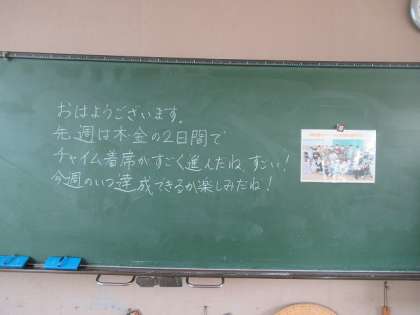 おはようございます。
先週は木金の2日間で
チャイム着席がすごく進んだね、すごい!
今週のいつ達成できるか楽しみだね!